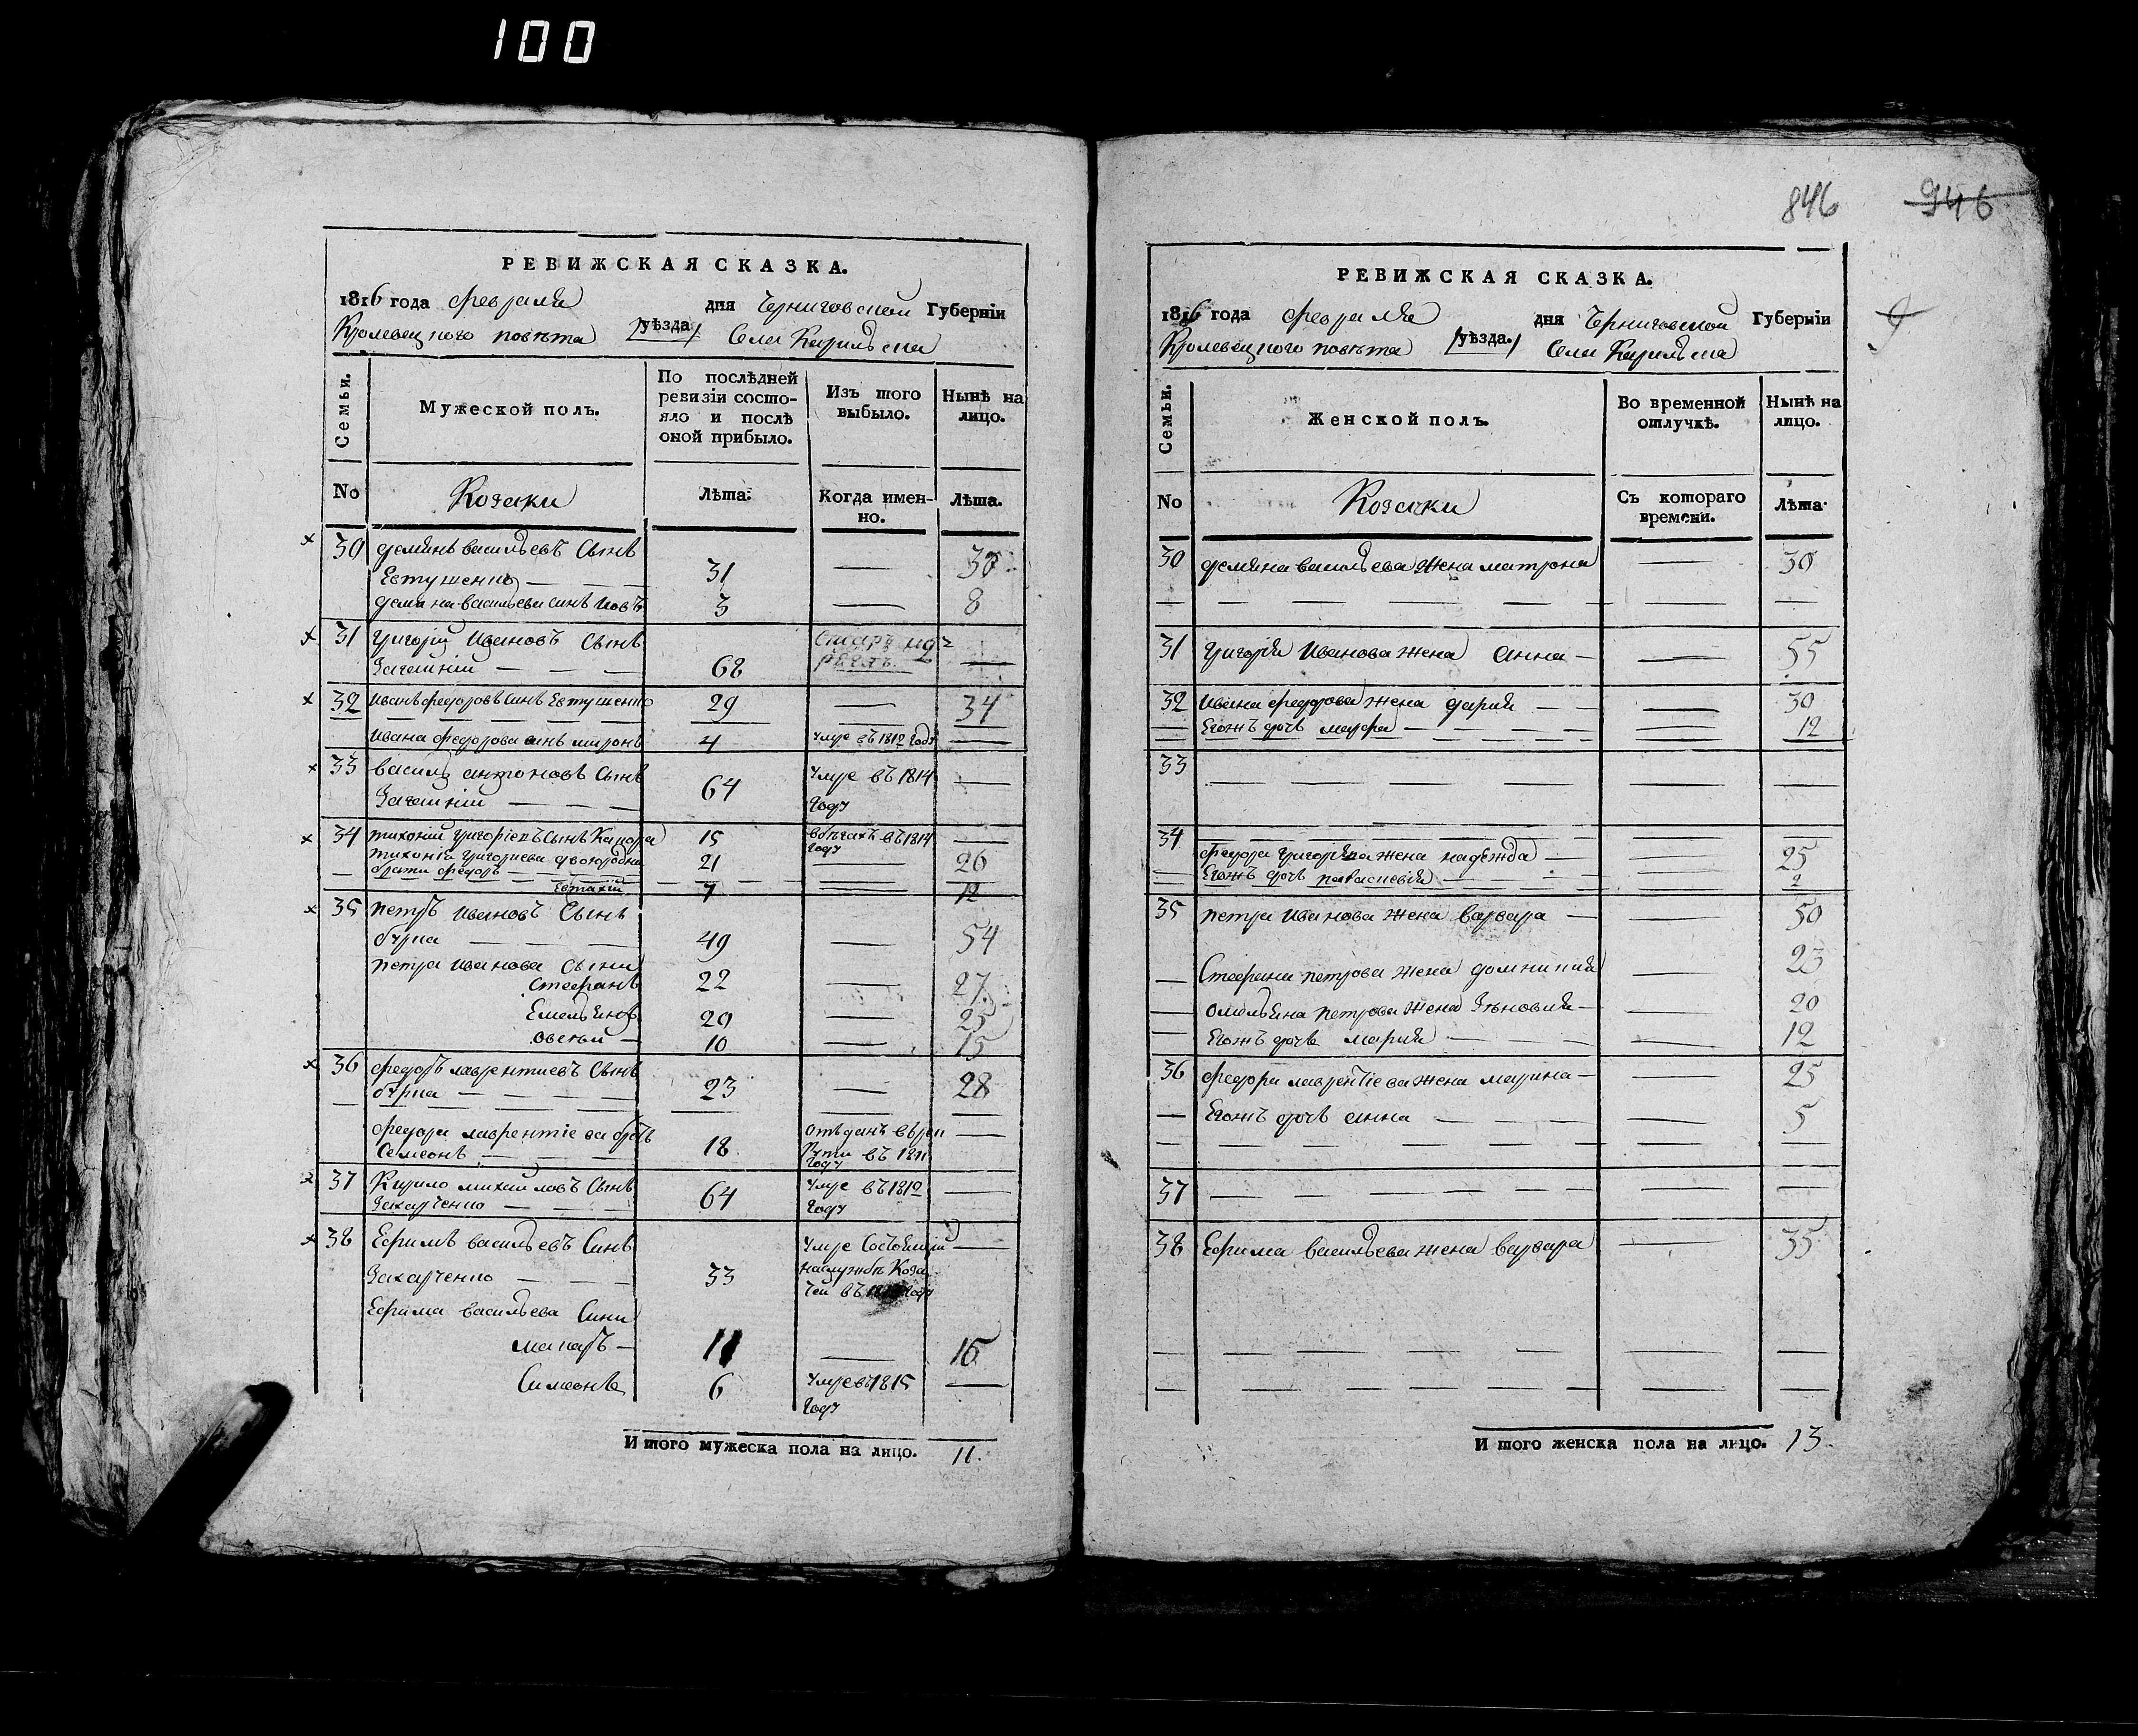 100
846 946
РЕВИЖСКАЯ СКАЗКА.
1816 года февраля дня Черниговской Губерніи
Кролевецкого повѣта /уѣзда/ Села Кирилъ
Семьи. Мужеской полъ. По послѣдней ревизіи состояло и послѣ оной прибыло. Изъ того выбыло. Нынѣ на лицо.
No Козаки Лѣта. Когда именно. Лѣта.
30 Демянъ васильевъ Сынъ
Евтушенко — 31 — 36
Демяна васильева синъ 3 — 8
31 Григорій Ивановъ Сынъ
68 —
32 Иванъ федоровъ синъ Евтушенко 29 — 34
Ивана федорова синъ миронъ 4 умре въ 1812 годѵ —
33 Василь антоновъ Сынъ 64 умре въ 1814 —
годѵ
34 тихоній григоріевъ Сынъ 15 в бѣгахъ въ 1814 —
годѵ
тихонія григориева двоюродни 21 — 26
брати федоръ
Евтихій 7 — 12
35 петръ ивановъ Сынъ
бурка — 49 — 54
петра иванова Сыни
Стефанъ 22 — 27
Емельянъ 20 — 25
овсѣй — 10 — 15
36 федоръ лаврентиевъ Сынъ
бурка — 23 — 28
федора лаврентіева братъ отъданъ въ рек
Семіонъ — 18 рути въ 1811 —
годѵ
37 Кирило михайловъ Сынъ 64 умре въ 1812 —
Захарченко — годѵ
38 Ефимъ васильевъ Синъ умре Состоящій —
Захарченко — 33 на службѣ Коза
чей въ годѵ
Ефима васильева Сини
макаръ — 11 — 16
Симеонъ 6 умре въ 1815 —
годѵ
И того мужеска пола на лицо. 11.
РЕВИЖСКАЯ СКАЗКА.
1816 года февраля дня Черниговской Губерніи
Кролевецкого повѣта /уѣзда./ Села Кирилъ
Семьи. Женской полъ. Во временной отлучкѣ. Нынѣ на лицо.
No Козачки Съ котораго времени. Лѣта.
30 Демяна васильева жена матрона — 30
31 Григорія Иванова жена анна — — 55
32 Ивана федорова жена дария — — 30
Егожъ дочь марфа — — 12
33 — — —
34 — — —
федора григориева жена надежда — — 25
Егожъ дочь параскевія — — 2
35 петра иванова жена варвара — — 50
Стефана петрова жена домникия — 23
омельяна петрова жена Зѣновия — — 20
Егожъ дочь мария — — 12
36 федора лаврентіева жена марина — — 25
Егожъ дочь анна — — 5
37 — — —
38 Ефима васильева жена варвара — 35
И того женска пола на лицо. 13.